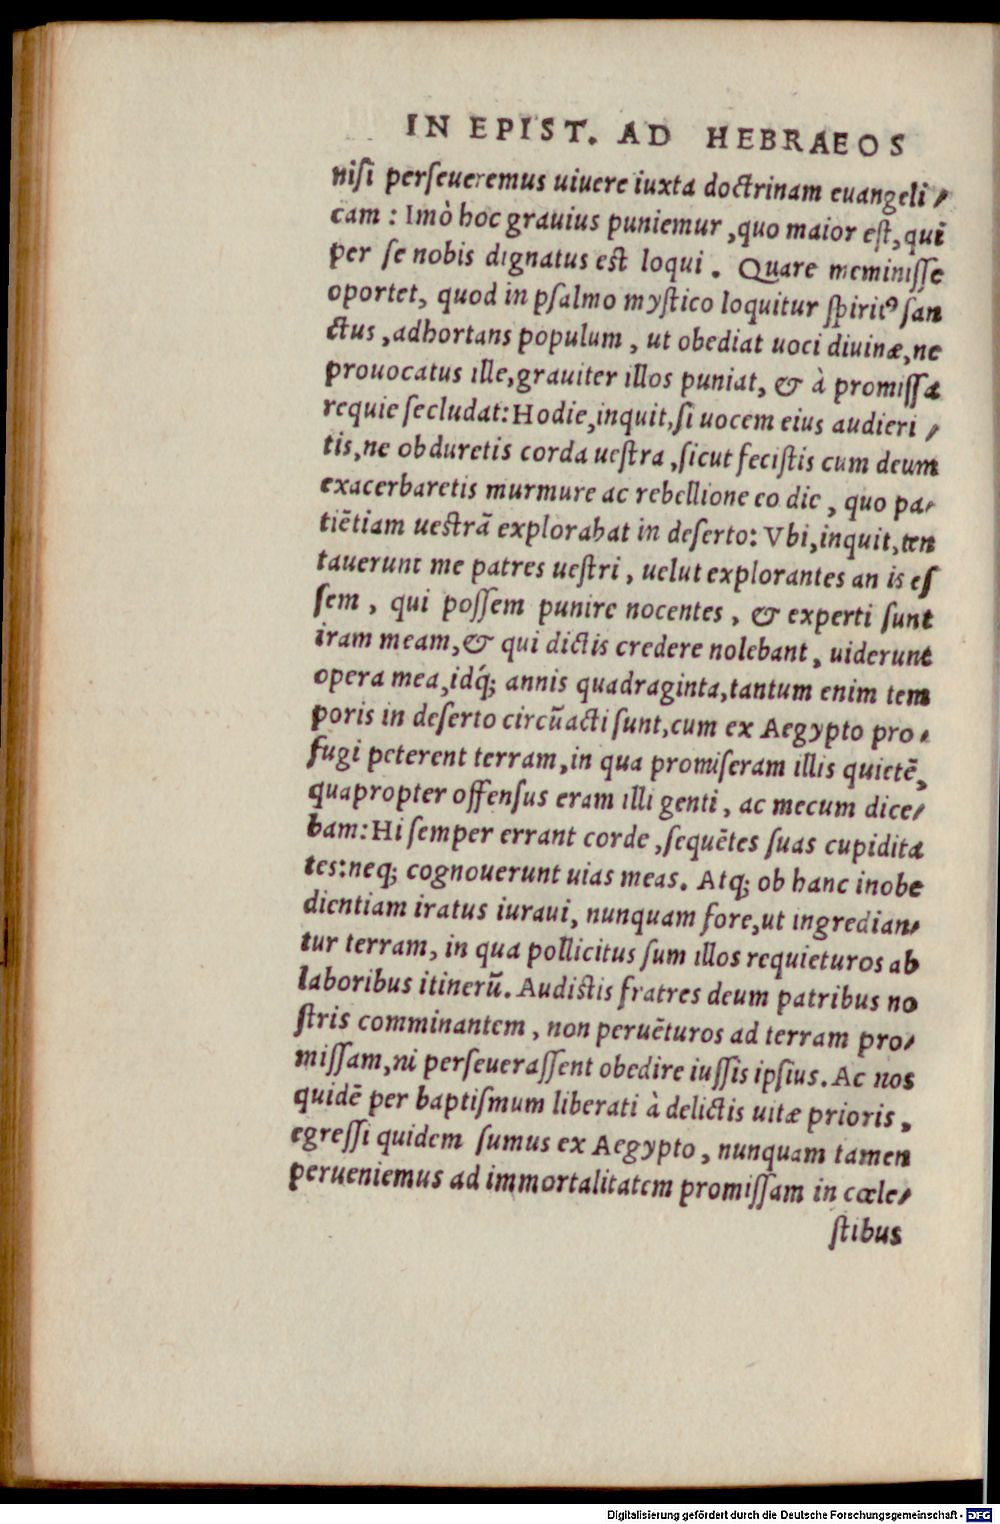 IN EPIST. AD HEBRAEOS
niſi perſeueremus uiuere iuxta doctrinam euangeli⸗
cam : Imò hoc grauius puniemur ,quo maior eſt,qui
per ſe nobis dignatus est loqui . Quare meminiſſe
oportet, quod in pſalmo myſtico loquitur ſpiritꝰ ſan
ctus ,adhortans populum , ut obediat uoci diuinæ,ne
prouocatus ille,grauiter illos puniat, & à promiſſa
requie ſecludat: Hodie,inquit,ſi uocem eius audieri ⸗
tis,ne obduretis corda ueſtra ,ſicut feciſtis cum deum
exacerbaretis murmure ac rebellione eo die , quo pa⸗
tiētiam uestrā explorabat in deſerto: Vbi,inquit,ten
tauerunt me patres ueſtri , uelut explorantes an is eſ
ſem , qui poſſem punire nocentes , & experti ſunt
iram meam,& qui dictis credere nolebant , uiderunt
opera mea,idq́; annis quadraginta,tantum enim tem
poris in deſerto circūacti ſunt,cum ex Aegypto pro⸗
fugi peterent terram,in qua promiſeram illis quietē,
quapropter offenſus eram illi genti , ac mecum dice⸗
bam: Hi ſemper errant corde ,ſequētes ſuas cupidita
tes:neq; cognouerunt uias meas. Atq; ob hanc inobe
dientiam iratus iuraui, nunquam fore,ut ingredian⸗
tur terram, in qua pollicitus ſum illos requieturos ab
laboribus itinerū. Audistis fratres deum patribus no
ſtris comminantem , non peruēturos ad terram pro⸗
miſſam,ni perſeueraſſent obedire iuſſis ipſius. Ac nos
quidē per baptiſmum liberati à delictis uitæ prioris ,
egreſſi quidem ſumus ex Aegypto , nunquam tamen
perueniemus ad immortalitatem promiſſam in cœle⸗
ſtibus
Digitalisierung gefördert durch die Deutsche Forschungsgemeinschaft - DFG